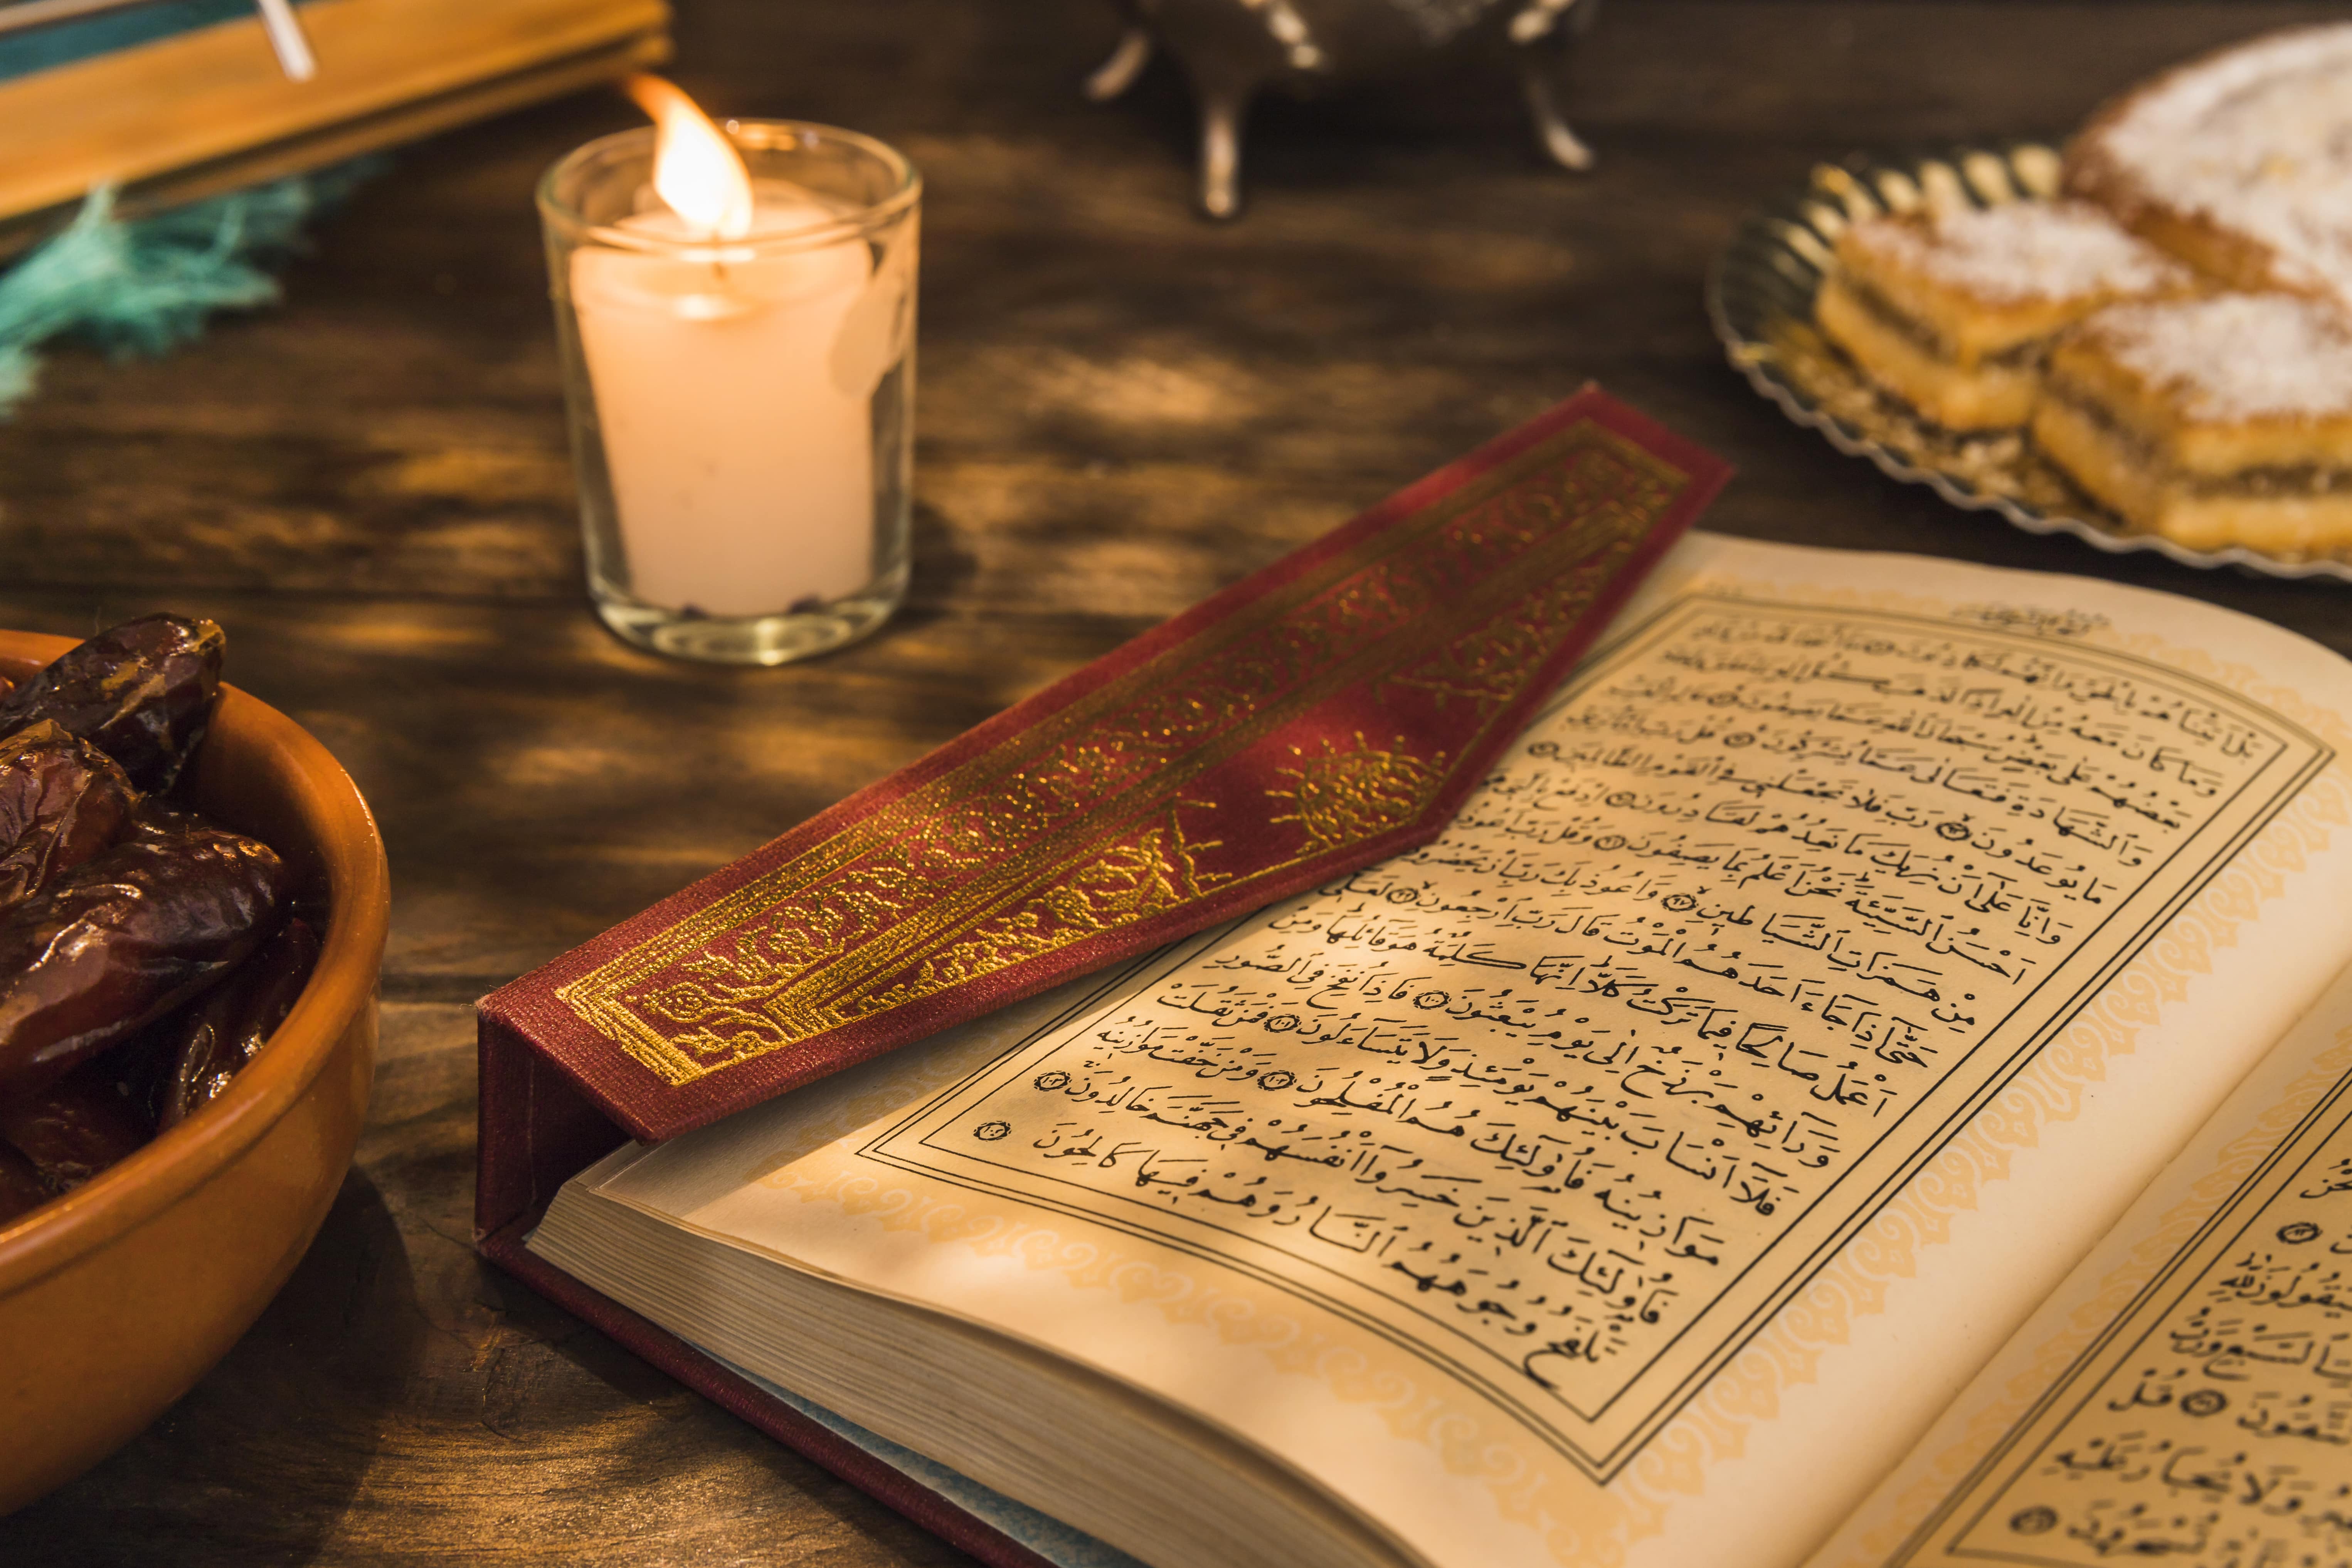 بَلْ اَتَيْنَاهُمْ بِالْحَقِّ وَاِنَّهُمْ لَكَاذِبُونَ
وَمَا كَانَ مَعَهُ مِنْ اِلٰهٍ اِذًا لَذَهَبَ كُلُّ اِلٰهٍ بِمَا خَلَقَ
بَعْضُهُمْ عَلٰى بَعْضٍ سُبْحَانَ اللّٰهِ عَمَّا يَصِفُونَ ٩١ عَالِمِ الْغَيْبِ
وَالشَّهَادَةِ فَتَعَالٰى عَمَّا يُشْرِكُونَ ٩٢ قُلْ رَبِّ اِمَّا تُرِيَنِّى
مَا يُوعَدُونَ ٩٣ رَبِّ فَلَا تَجْعَلْنِى فِى الْقَوْمِ الظَّالِمِينَ ٩٤
وَاِنَّا عَلٰٓى اَنْ نُرِيَكَ مَا نَعِدُهُمْ لَقَادِرُونَ ٩٥ اِدْفَعْ بِالَّتِى
اَحْسَنُ السَّيِّئَةَ نَحْنُ اَعْلَمُ بِمَا يَصِفُونَ ٩٦ وَقُلْ رَبِّ اَعُوذُ
مِنْ هَمَزَاتِ الشَّيَاطِينِ ٩٧ وَاَعُوذُ بِكَ رَبِّ اَنْ يَحْضُرُونِ
حَتّٰٓى اِذَا جَاءَ اَحَدَهُمُ الْمَوْتُ قَالَ رَبِّ ارْجِعُونِ ٩٩ لَعَلِّى
اَعْمَلُ صَالِحًا فِيمَا تَرَكْتُ كَلَّا اِنَّهَا كَلِمَةٌ هُوَ قَائِلُهَا وَمِنْ
وَرَائِهِمْ بَرْزَخٌ اِلٰى يَوْمِ يُبْعَثُونَ ١٠٠ فَاِذَا نُفِخَ فِى الصُّورِ
فَلَا اَنْسَابَ بَيْنَهُمْ يَوْمَئِذٍ وَلَا يَتَسَاءَلُونَ ١٠١ فَمَنْ ثَقُلَتْ
مَوَازِينُهُ فَاُولٰئِكَ هُمُ الْمُفْلِحُونَ ١٠٢ وَمَنْ خَفَّتْ مَوَازِينُهُ
فَاُولٰئِكَ الَّذِينَ خَسِرُوا اَنْفُسَهُمْ فِى جَهَنَّمَ خَالِدُونَ ١٠٣
تَلْفَحُ وُجُوهَهُمُ النَّارُ وَهُمْ فِيهَا كَالِحُونَ ١٠٤
سَيَقُولُونَ لِلّٰهِ
قُلْ
وَلَا يُجَارُ عَلَيْهِ